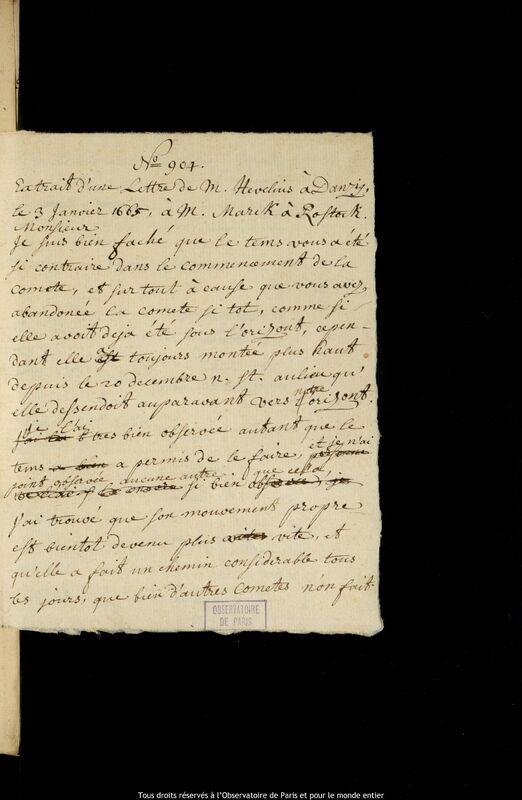 No 904.
Extrait d'une Lettre de M. Hevelius à Danzig,
le 3 Janvier 1665, à M. Marck à Rostock.
Monsieur
Je suis bien faché que le tems vous a été
si contraire dans le commencement de la
comete, et sur tout à cause que vous avez
abandonée la comete si tot, comme si
elle avoit deja été sous l'orizont, cepen-
dant elle est toujours montée plus haut
depuis le 20 decembre n. st. aulieu qu'
elle dessendoit auparavant vers notre orizont.
je l'ai
tres bien observée autant que le
tems a bien a permis de le faire, et je n'ai
personne
point observé aucune autre que cella,
encore si bien
J'ai trouvé que son mouvement propre
est bientot devenu plus vites vite, et
qu'elle a fait un chemin considerable tous
les jours, que bien d'autres Cometes n'on fait
OBSERVATOIRE
DE PARIS
Tous droits réservés à l'Observatoire de Paris et pour le monde entier